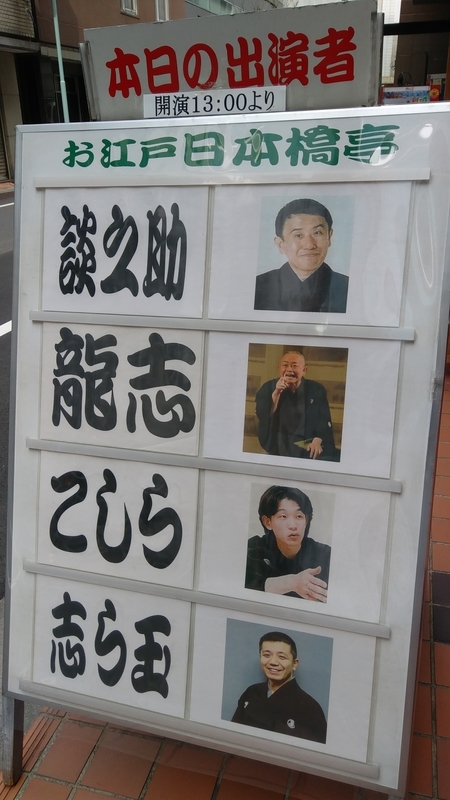 本日の出演者
開演13:00より
お江戸日本橋亭
談之助
龍志
こしら
志ら玉